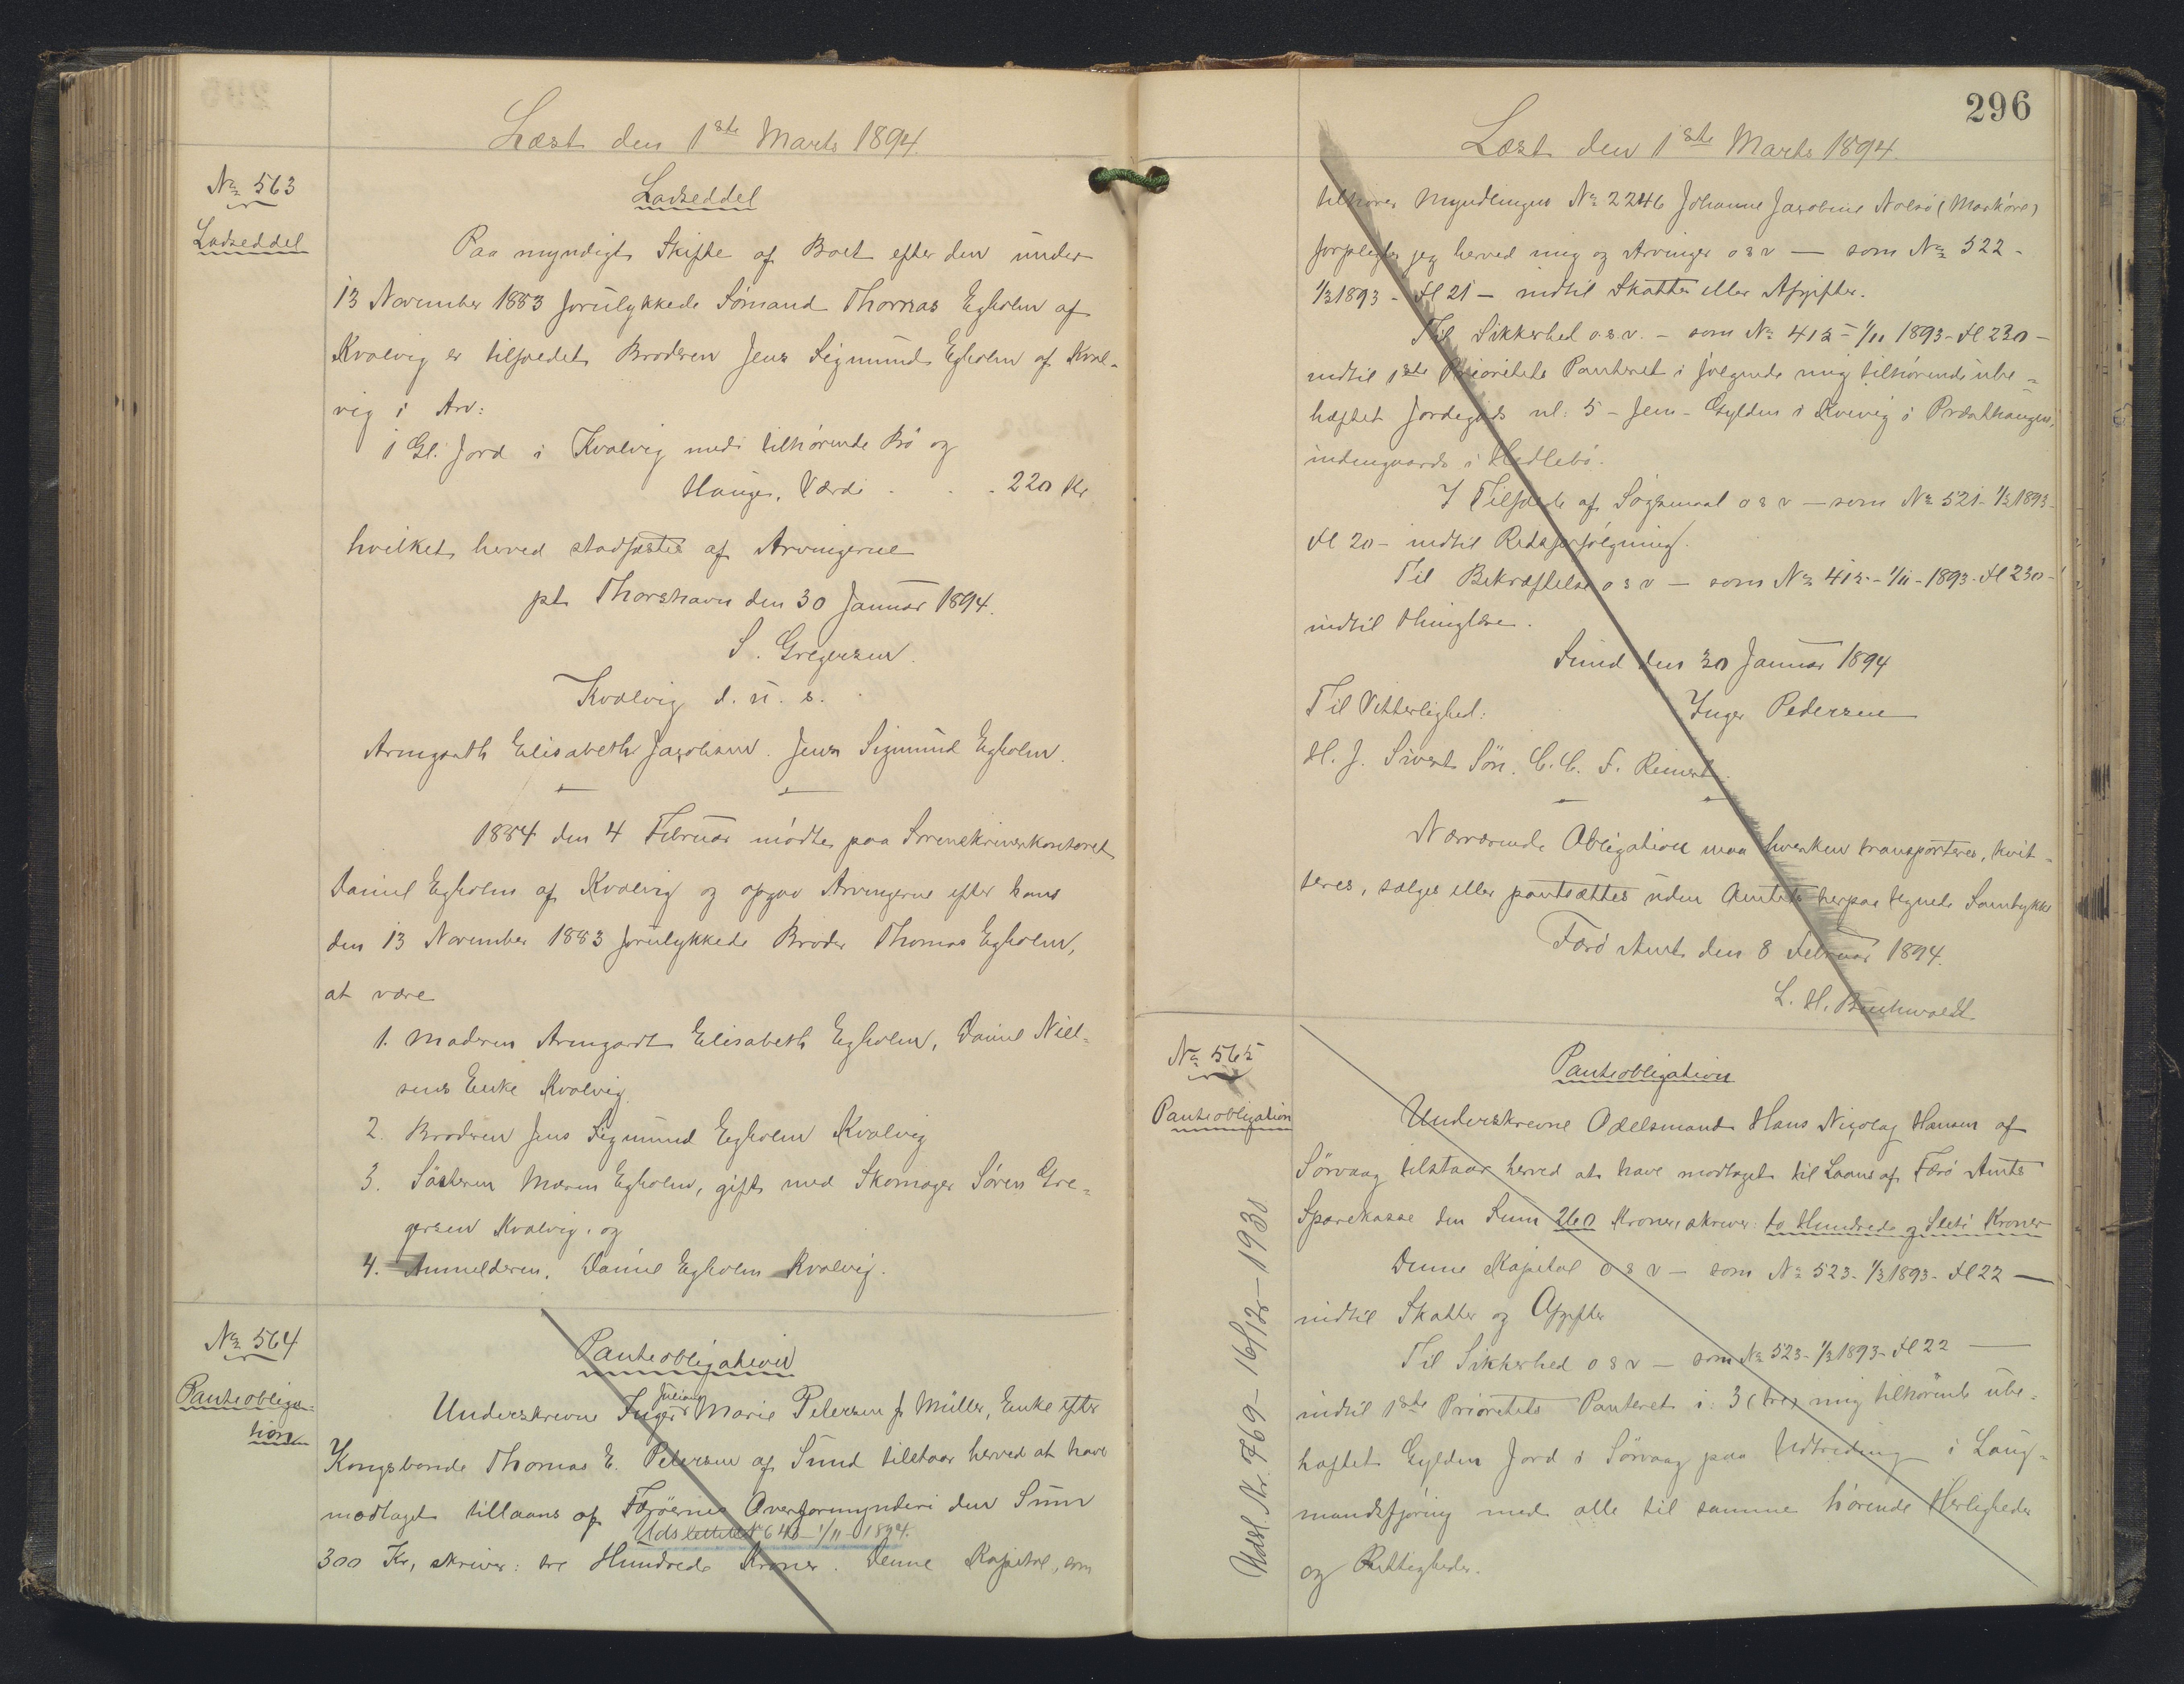 Læst den 1ste Marts 1894.
No 563
Lodseddel
Lodseddel
Paa myndigt Skifte af Boet efter den under
13 November 1883 forulykkede Sømand Thomas Egholm af
Kvalvig er tilfaldet Broderen Jens Sigmund Egholm af Kval-
vig i Arv:
1 Gl. Jord i Kvalvig med tilhørende Bø og
Hauge, Værdi . . . 220 Kr
hvilket herved stadfæstes af Arvingerne
pt. Thorshavn den 30 Januar 1894.
S. Gregersen.
Kvalvig d. u. s.
Armgarth Elisabeth Jacobsen. Jens Sigmund Egholm.
1884 den 4 Februar mødte paa Sorenskriverkontoret
Daniel Egholm af Kvalvig og opgav Arvingerne efter hans
den 13 November 1883 forulykkede Broder Thomas Egholm,
at være
1. Moderen Armgardt Elisabeth Egholm, Daniel Niel=
sens Enke Kvalvig.
2. Broderen Jens Sigmund Egholm Kvalvig
3. Søsteren Maren Egholm, gift med Skomager Søren Gre=
gersen Kvalvig, og
4. Anmelderen, Daniel Egholm Kvalvig.
No 564
Panteobliga=
tion
Panteobligation
Juliane
Underskrevne Inger Marie Petersen f. Müller, Enke efter
Kongsbonde Thomas E. Petersen af Sund tilstaar herved at have
modtaget tillaans af Færøernes Overformynderi den Sum
Udslettet No 640 - 1/11 - 1894.
300 Kr, skriver: tre Hundrede Kroner. Denne Kapital, som
296
Læst den 1ste Marts 1894.
tilhører Myndlingen No 2246 Johanne Jacobine Nolsø
forpligter jeg herved mig og Arvinger o s v — som No 522 -
1/3 1893 - fl 21 — indtil Skatter eller Afgifter.
Til Sikkerhed o.s.v. - som No 415 - 1/11 1893 - fl 230 -
indtil 1ste Prioritets Panteret i følgende mig tilhørende ube =
hæftet Jordegods nl: 5 - fem - Gylden i Kvivig i
indengaards i Hedlebø.
I Tilfælde af Søgsmaal o s v — som No 521 - 1/3 1893 -
fl 20 - indtil Retsforfølgning.
Til Bekræftelse o s v — som No 415 - 1/11 - 1893 - fl 230 -
indtil thinglæse.
Sund den 30 Januar 1894
Til Vitterlighed:
Inger Pedersen
H. J. Sivert Søn. C. C. F. Reinert.
Nærværende Obligation maa hverken transporteres, kvit=
teres, sælges eller pantsættes uden Amtets herpaa tegnede Samtykke
Færø Amt den 8 Februar 1894.
L. H. Buchwaldt
No 565
Panteobligation
Panteobligation
Underskrevne Odelsmand Hans Nicolaj Hansen af
Sörvaag tilstaar herved at have modtaget til Laans af Færø Amts
Sparekasse den Sum 260 Kroner, skriver: to Hundrede og Sleti Kroner
Denne Kapital o s v — som No 523 - 1/3 1893 - fl 22 —
indtil Skatter og Afgifter
Til Sikkerhed o s v — som No 523 - 1/3 1893 - fl 22 —
indtil 1ste Prioritets Panteret i: 3 (tre) mig tilhørende ube=
hæftet Gylden Jord i Sörvaag paa i Laug=
mandsfjøring med alle til samme hørende Herligheder
og Rettigheder.
Udsl. Nr. 769 - 16/12 - 1930